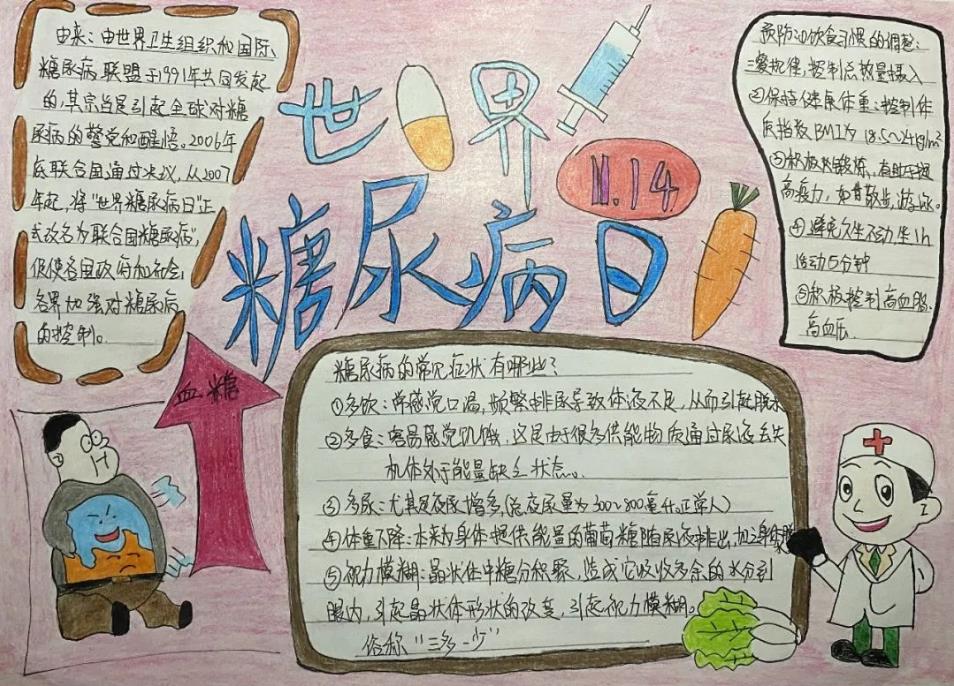 由来：由世界卫生组织和国际
糖尿病联盟于1991年共同发起
的，其宗旨是引起全球对糖
尿病的警觉和醒悟。2006年
底联合国通过决议，从2007
年起，将"世界糖尿病日"正
式改名为联合国糖尿病"，
促使各国政府和社会
各界加强对糖尿病
的控制。
世界
11.14
糖尿病日
预防：①饮食习惯的调整：
三餐规律，控制总热量摄入
②保持健康体重：控制体
质指数BMI为18.5～24kg/m²
③积极
高免疫力，如散步，游泳。
④避免久坐不动坐1h
活动5分钟
⑤积极控制高血脂、
高血压
血糖
糖尿病的常见症状有哪些？
①多饮：常感觉口渴，频繁排尿导致体液不足，从而引起脱水
②多食：容易感觉饥饿，这是由于很多供能物质通过尿液丢失
机体处于能量缺乏状态。
③多尿：尤其是夜尿增多，(总夜尿量为300-800毫升。正常人)
④体重下降：本来为身体提供能量的葡萄糖随尿液排出，加
⑤视力模糊：晶状体中糖分积聚，造成它吸收多余的水分到
眼内，引起晶状体形状的改变，引起视力模糊。
俗称"三多一少"